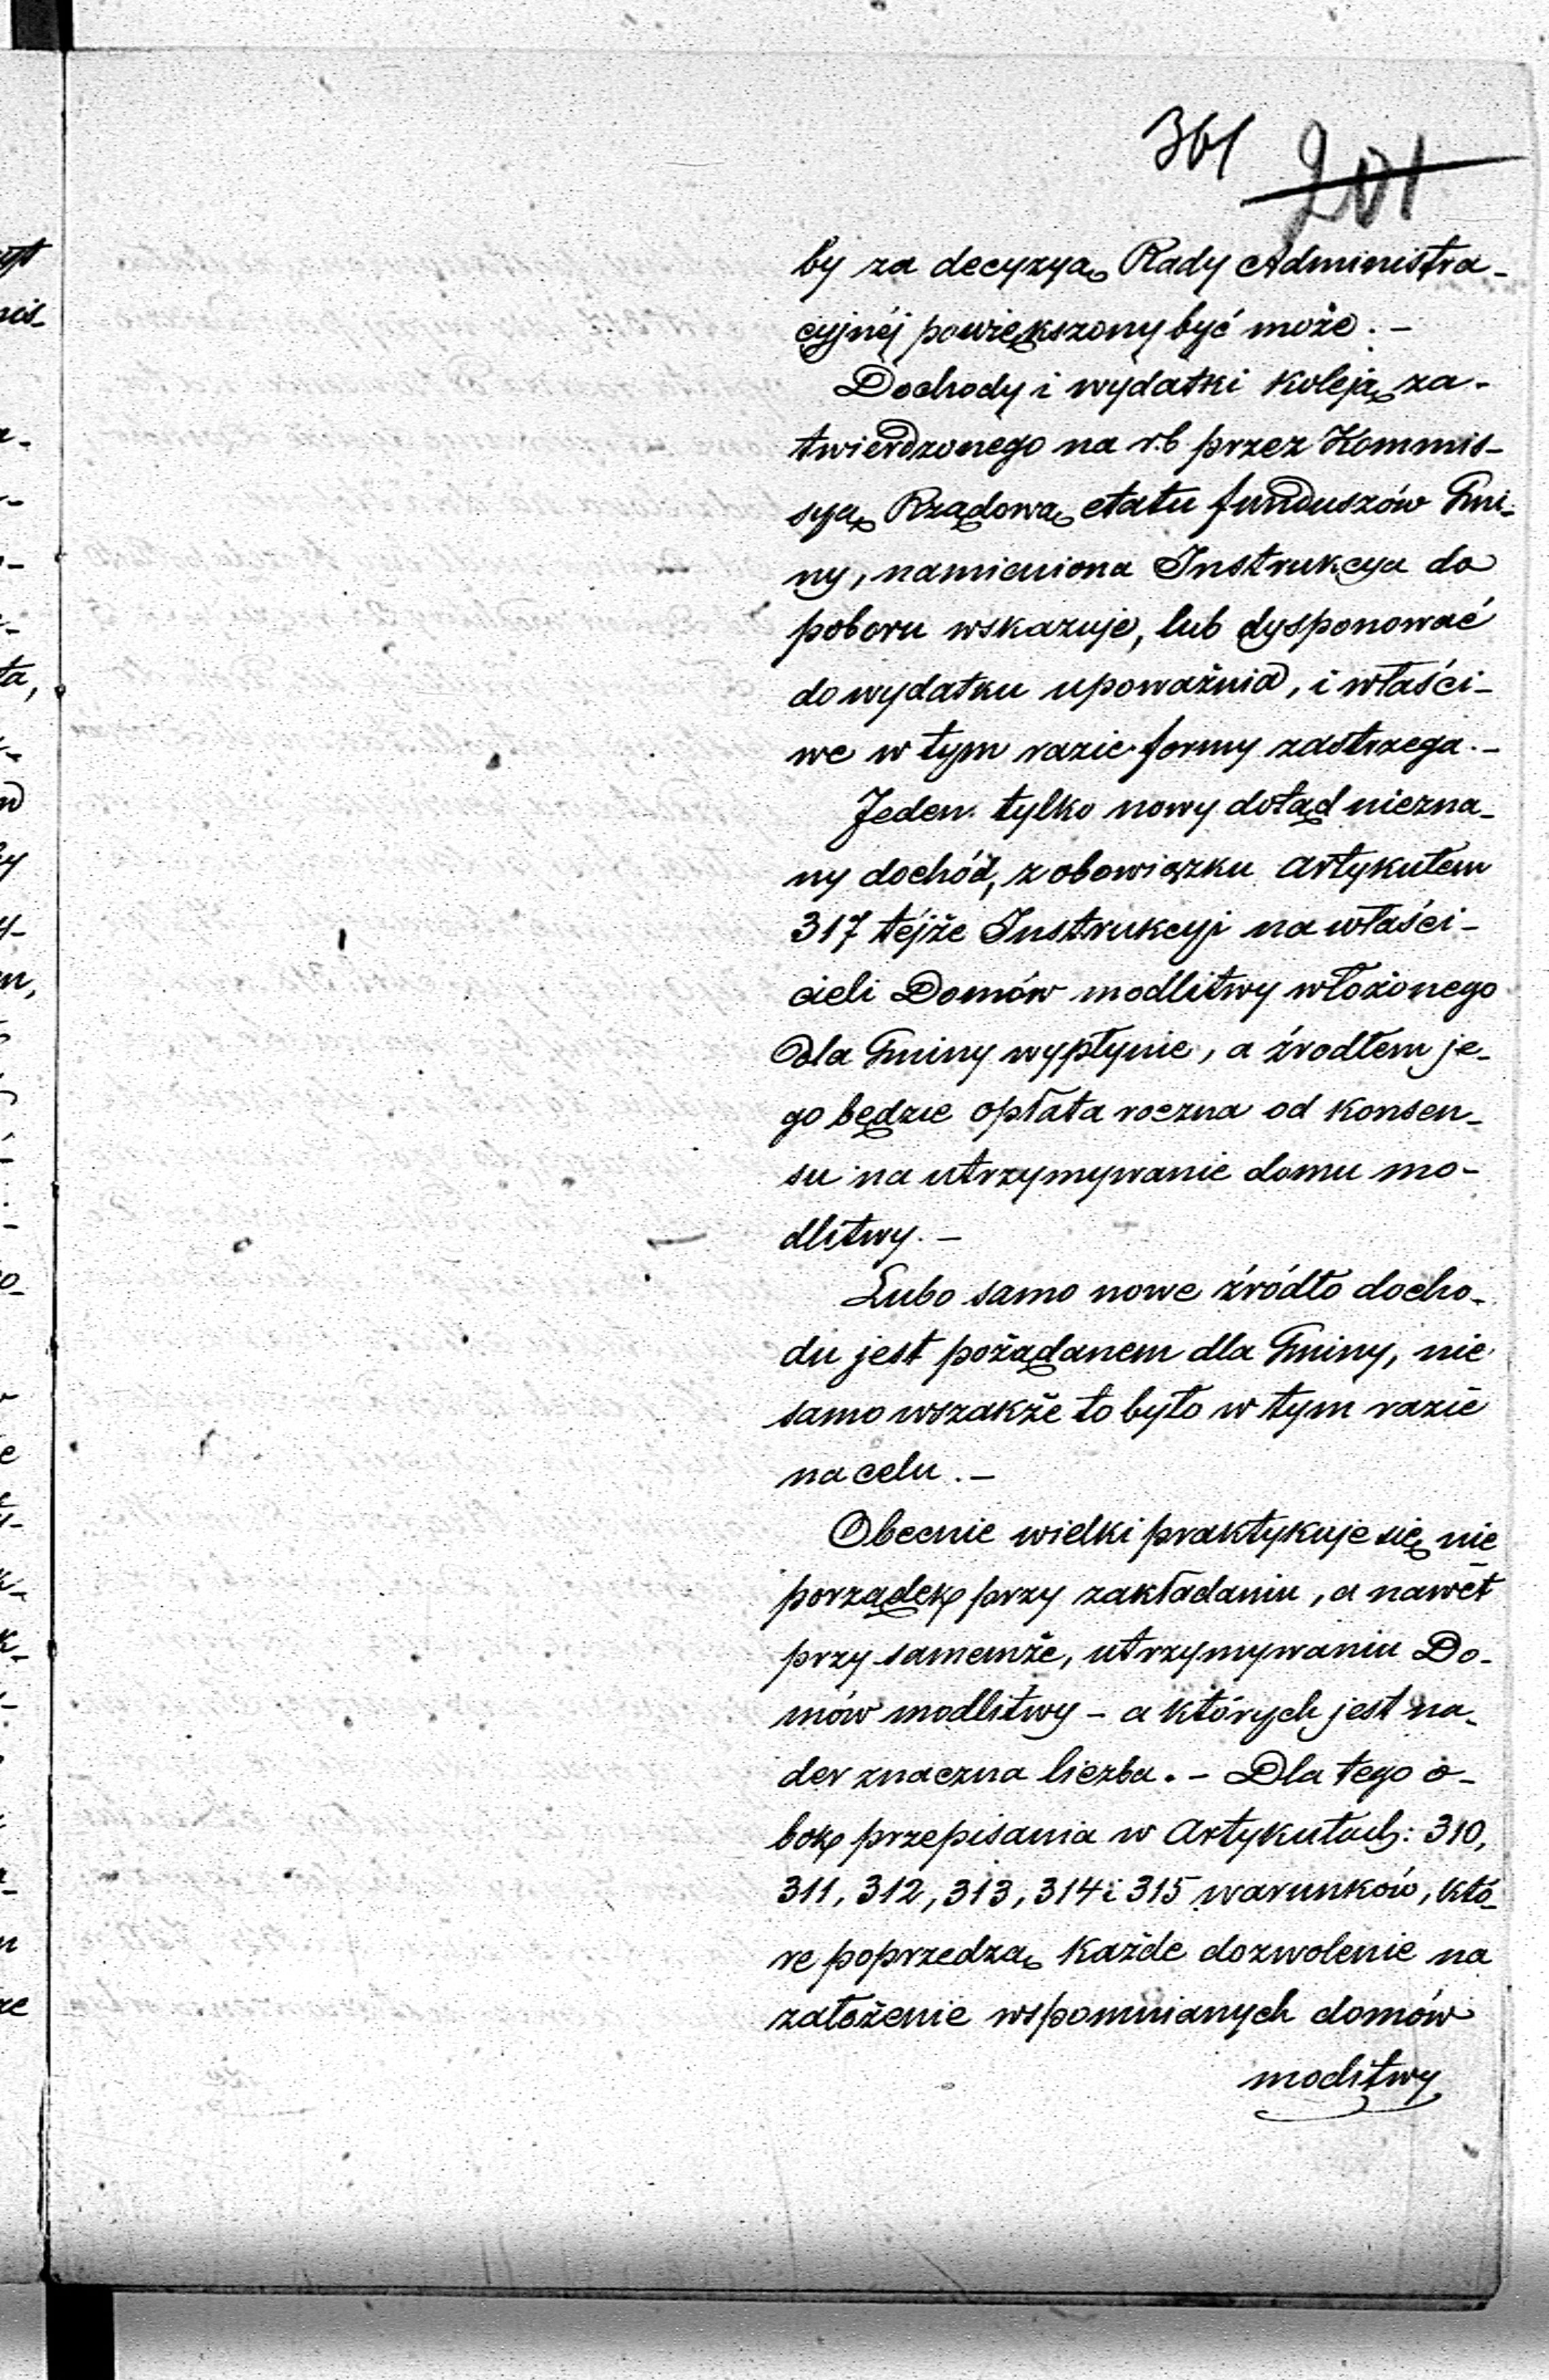 361 201
by za decyzyą Rady Administra-
cyjnéj powiększony być może. -
Dochody i wydatki koleją za-
twierdzonego na r.b przez Kommis-
syą Rządową etatu funduszów Gmi-
ny, namieniona Instrukcya do
poboru wskazuje, lub dysponować
do wydatku upoważnia, i właści-
we w tym razie formy zastrzega. -
Jeden tylko nowy dotąd niezna-
ny dochód, z obowiązku artykułem
317 téjże Instrukcyi na właści-
cieli Domów modlitwy włożonego
dla Gminy wypłynie, a źrodłem je-
go będzie opłata roczna od konsen-
su na utrzymywanie domu mo-
dlitwy. -
Lubo samo nowe źródło docho-
du jest pożądanem dla Gminy, nie
samo wszakże to było w tym razie
na celu. -
Obecnie wielki praktykuje się nie
porządek przy zakładaniu, a nawet
przy samemże, utrzymywaniu Do-
mów modlitwy - a których jest na-
der znaczna liczba. - Dla tego o-
bok przepisania w Artykułach: 310,
311, 312, 313, 314 i 315 warunków, któ-
re poprzedzą każde dozwolenie na
założenie wspomnianych domów
modlitwy